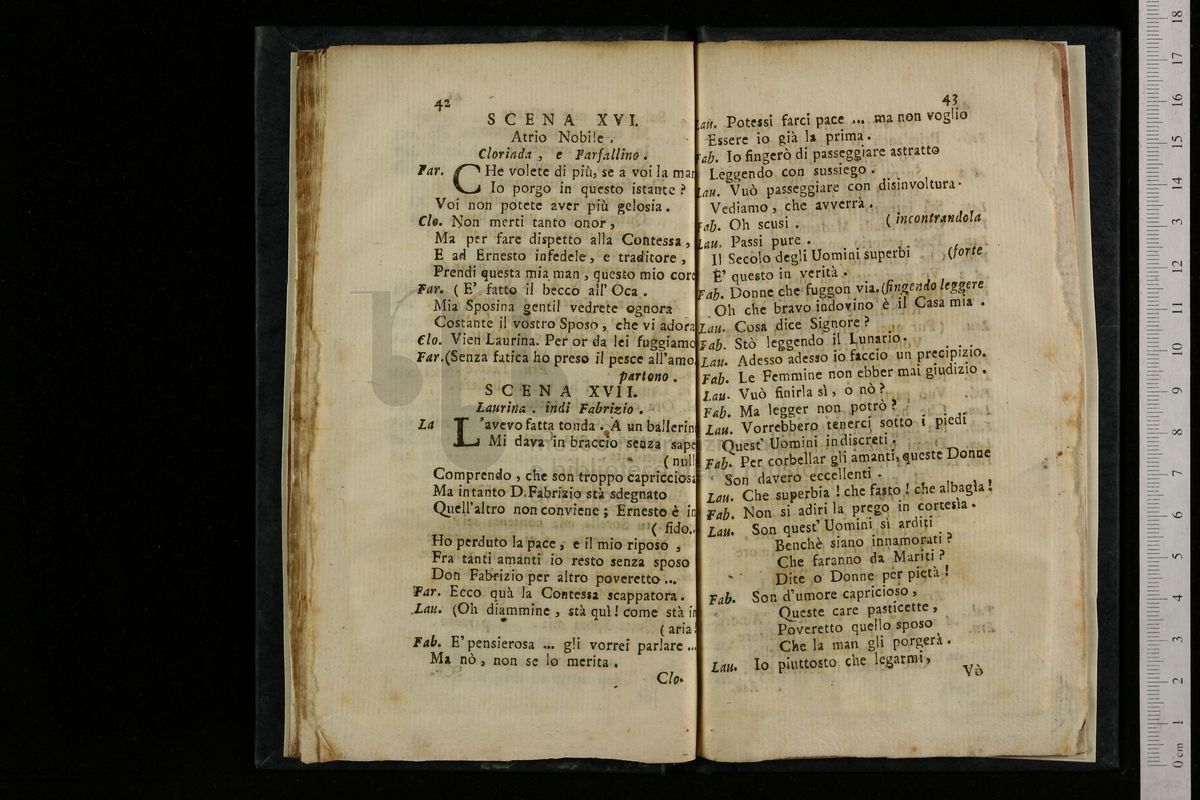 42
SCENA XVI.
Atrio Nobile.
Clorinda, e Farfallino.
Far. CHe volete di più, se a voi la man
Io porgo in questo istante?
Voi non potete aver più gelosia.
Clo. Non merti tanto onor,
Ma per fare dispetto alla Contessa,
E ad Ernesto infedele, e traditore,
Prendi questa mia man, questo mio core
Far. (E' fatto il becco all' Oca.
Mia Sposina gentil vedrete ognora
Costante il vostro Sposo, che vi adora
Clo. Vien Laurina. Per or da lei fuggiamo
Far. (Senza fatica ho preso il pesce all'amo.
partono.
SCENA XVII.
Laurina. indi Fabrizio.
La L'avevo fatta tonda. A un ballerin
Mi dava in braccio senza sape
(null
Comprendo, che son troppo capricciosa
Ma intanto D. Fabrizio stà sdegnato
Quell'altro non conviene; Ernesto è in
(fido.
Ho perduto la pace, e il mio riposo,
Fra tanti amanti io resto senza sposo
Don Fabrizio per altro poveretto...
Far. Ecco quà la Contessa scappatora.
Lau. (Oh diammine, stà quì! come stà in
(aria!
Fab. E' pensierosa ... gli vorrei parlare ...
Ma nò, non se lo merita.
Clo.
43
Lau. Potessi farci pace ... ma non voglio
Essere io già la prima.
Fab. Io fingerò di passeggiare astratto
Leggendo con sussiego.
Lau. Vuò passeggiare con disinvoltura.
Vediamo, che avverrà.
Fab. Oh scusi. (incontrandola
Lau. Passi pure.
Il Secolo degli Uomini superbi (forte
E' questo in verità.
Fab. Donne che fuggon via. (fingendo leggere
Oh che bravo indovino è il Casamia.
Lau. Cosa dice Signore?
Fab. Stò leggendo il Lunario.
Lau. Adesso adesso io faccio un precipizio.
Fab. Le Femmine non ebber mai giudizio.
Lau. Vuò finirla sì, o nò?
Fab. Ma legger non potrò?
Lau. Vorrebbero tenerci sotto i piedi
Quest' Uomini indiscreti.
Fab. Per corbellar gli amanti, queste Donne
Son davero eccellenti.
Lau. Che superbia! che fasto! che albagìa!
Fab. Non si adiri la prego in cortesìa.
Lau. Son quest' Uomini sì arditi
Benchè siano innamorati?
Che faranno da Mariti?
Dite o Donne per pietà!
Fab. Son d'umore capricioso,
Queste care pasticette,
Poveretto quello sposo
Che la man gli porgerà.
Lau. Io piuttosto che legarmi,
Vò